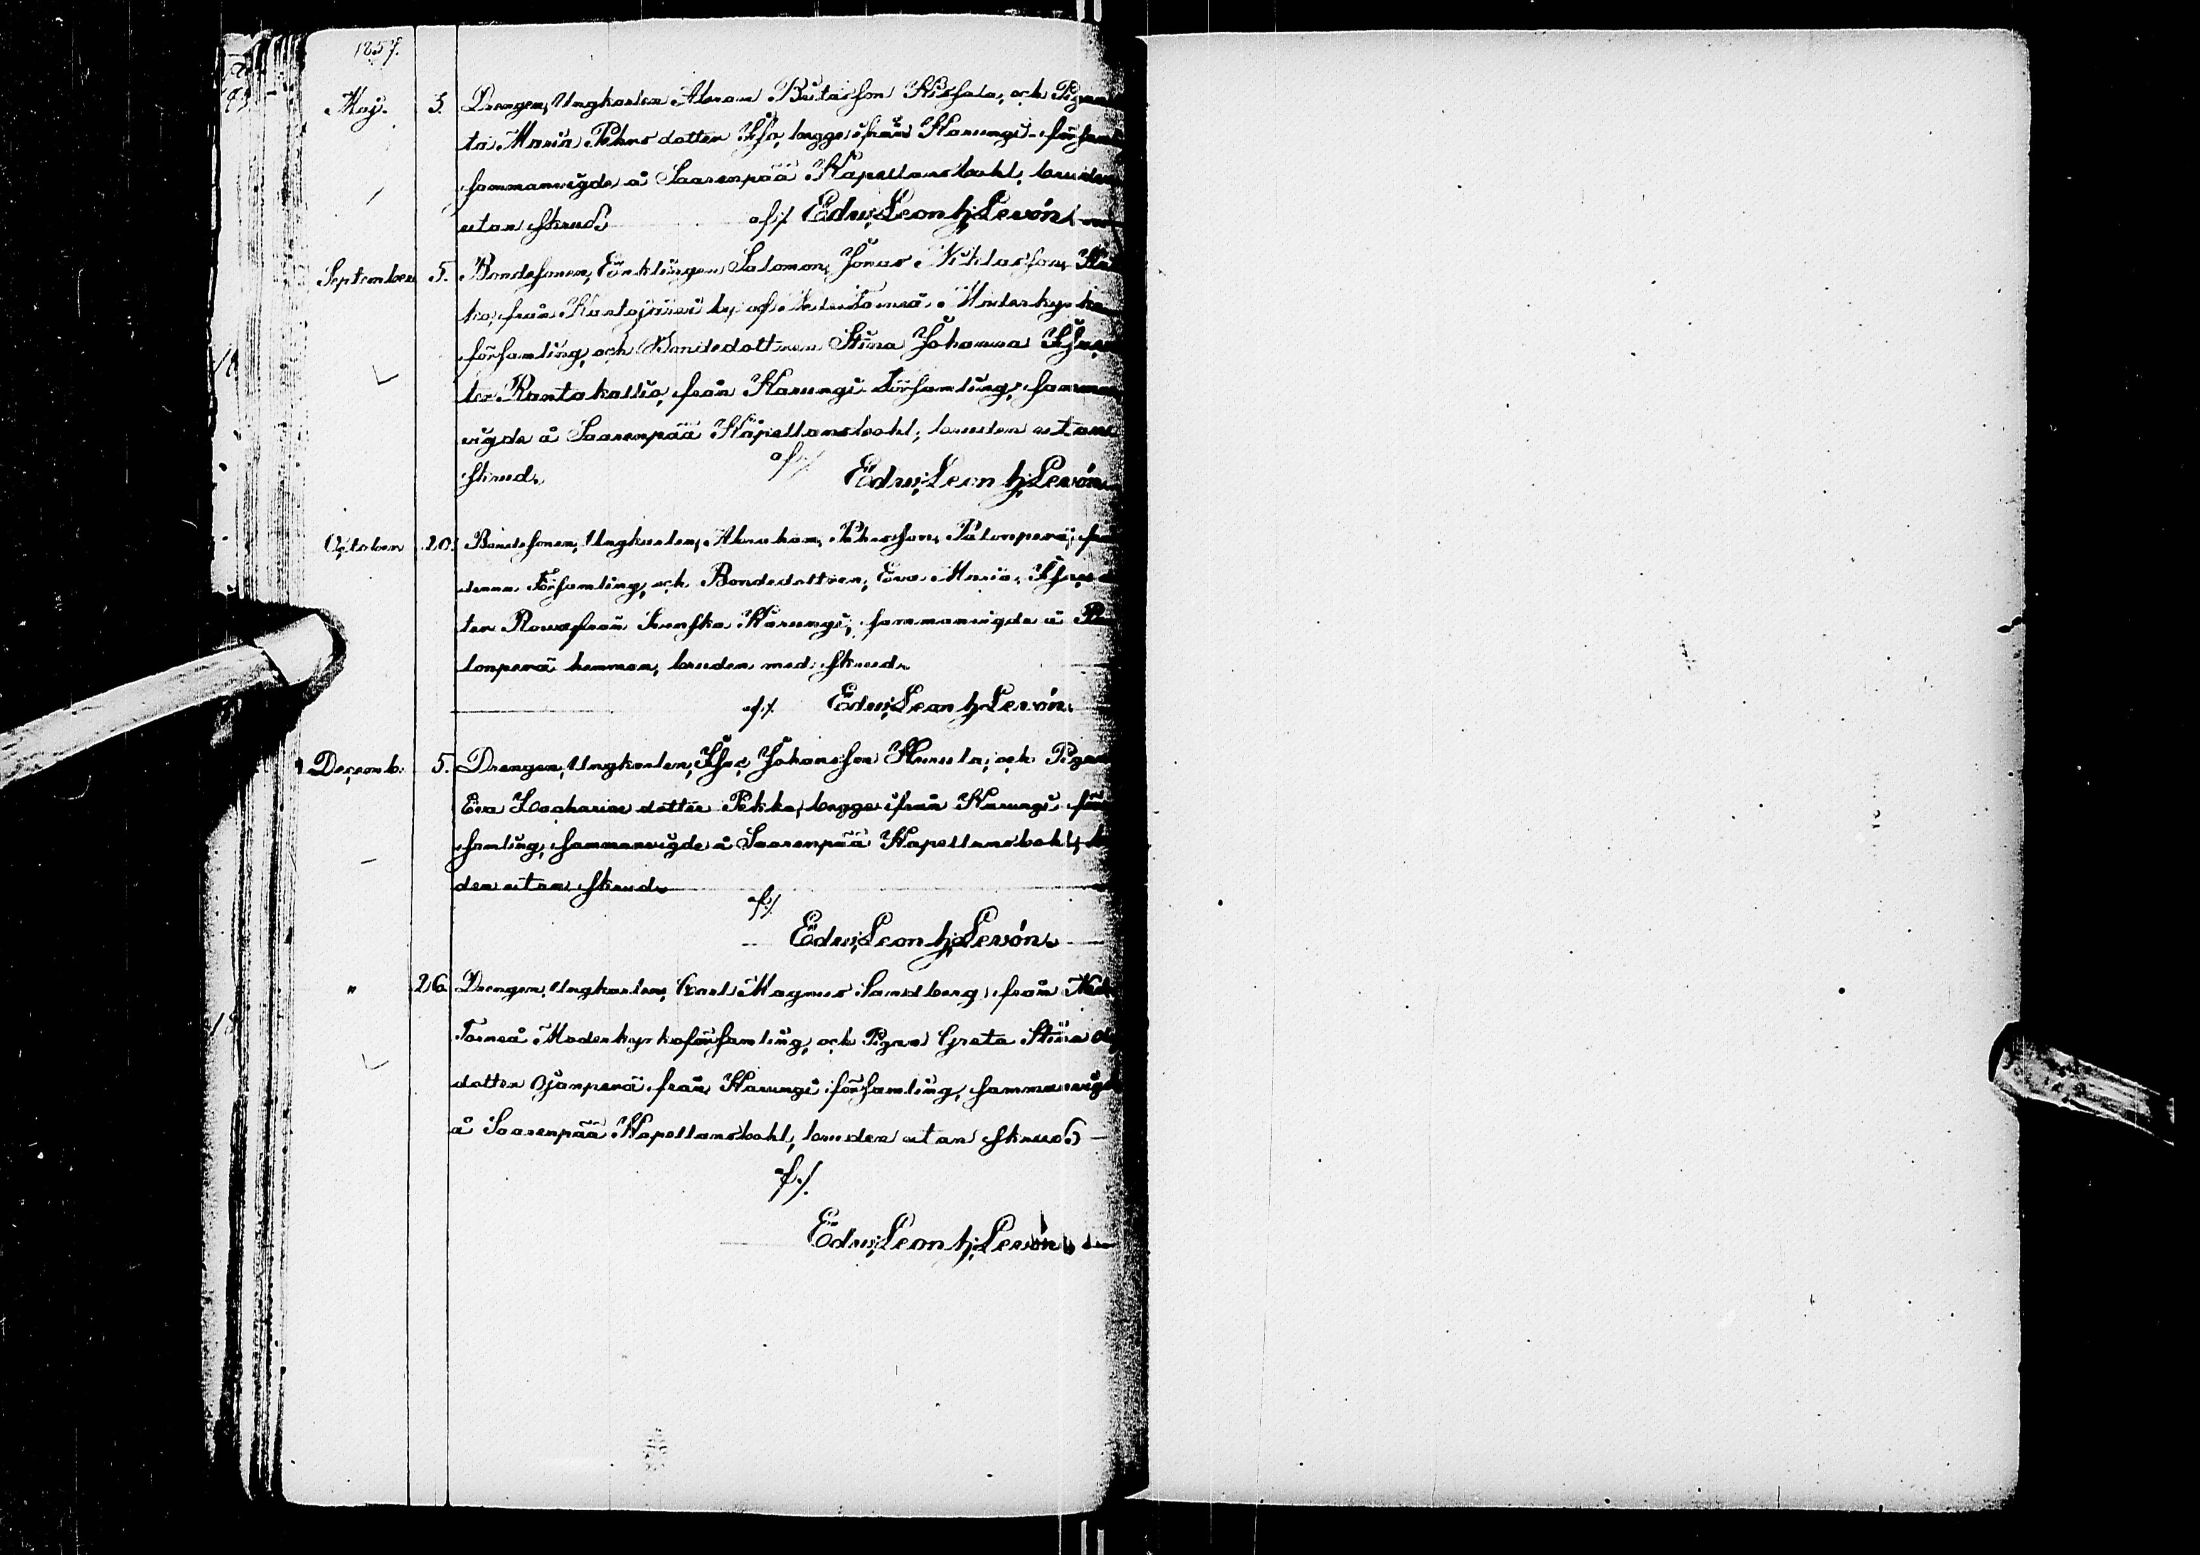 1857.
May. 3. Drengen, Ungkarlen Abram Kissala, och Pigan
ta Maria Pehrs dotter begge ifrån Karungi församl
sammanvigde å Saarenpää Kapellansbohl, bruden
utan skrud. af Edw: Leonh: Levón
September 5. Bondesonen, Enklingen Salomon Jonas Niklasson
ko, från Kantojärvi by af Neder Torneå Moderkyrko
församling, och Bondedottren Stina Johanna
ter Rantakallio, från Karungi Församling, samman
vigde å Saarenpää Kapellansbohl, bruden utan
skrud. af Edw: Leonh: Levón
October 20. Bondesonen, Ungkarlen, Abraham Pehrsson, Palonperä,
denna Församling, och Bondedottren, Eva Maria,
ter Rova från Svenska Karungi, sammanvigde å Pa
lonperä hemman, bruden med skrud.
af Edw: Leonh: Levón.
Decemb: 5. Drengen, Ungkarlen, Isac Johansson och Pigan
Eva Zacharias dotter Pekka, begge ifrån Karungi för
samling, sammanvigde å Saarenpää Kapellansbohl,
den utan skrud.
af
Edw: Leonh: Levón.
" 26. Drengen, Ungkarlen, Carl Magnus Sandberg, från Ned
Torneå Moderkyrkoförsamling, och Pigan Greta Stina
dotter Ojanperä från Karungi församling, sammanvigde
å Saarenpää Kapellansbohl, bruden utan skrud.
af
Edw: Leonh: Levón